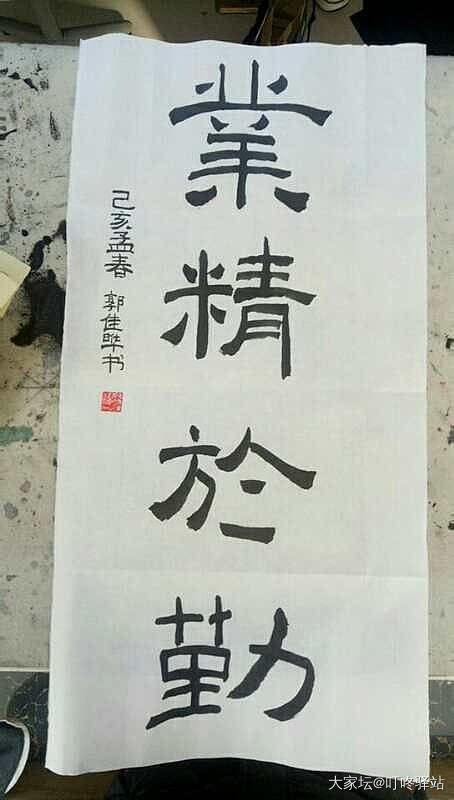 業精於勤
己亥孟春 郭佳晔书
大家坛@叮咚驿站